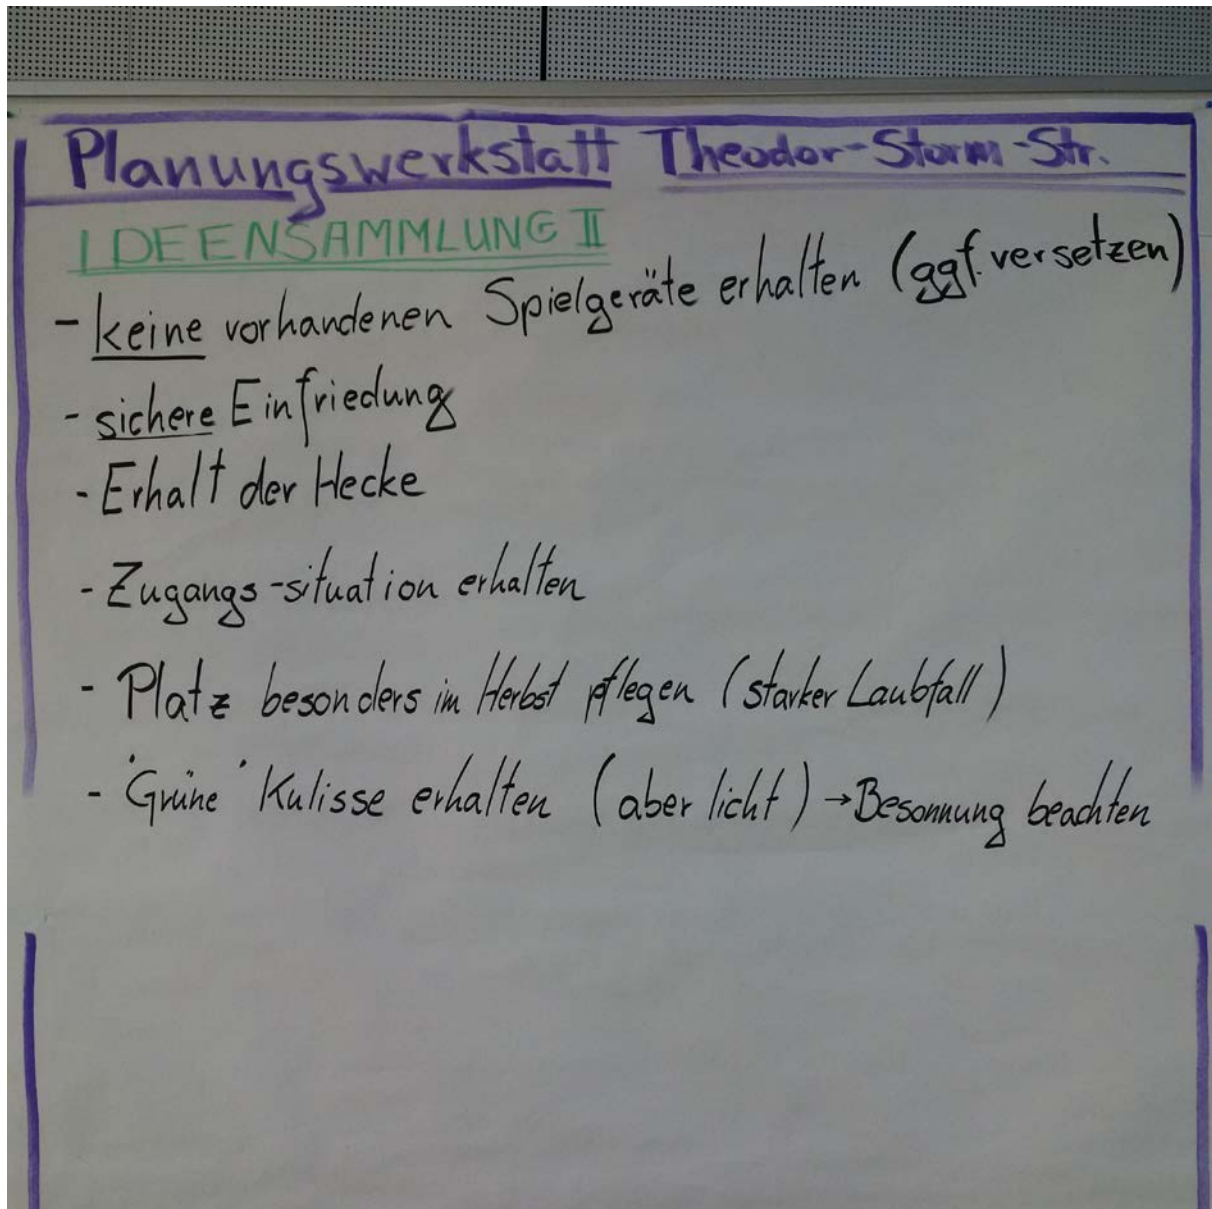 Planungswerkstatt Theodor-Storm-Str.
IDEENSAMMLUNG II
- keine vorhandenen Spielgeräte erhalten (ggf. versetzen)
- sichere Einfriedung
- Erhalt der Hecke
- Zugangs-situation erhalten
- Platz besonders im Herbst pflegen (starker Laubfall)
- "Grüne" Kulisse erhalten (aber licht) → Besonnung beachten